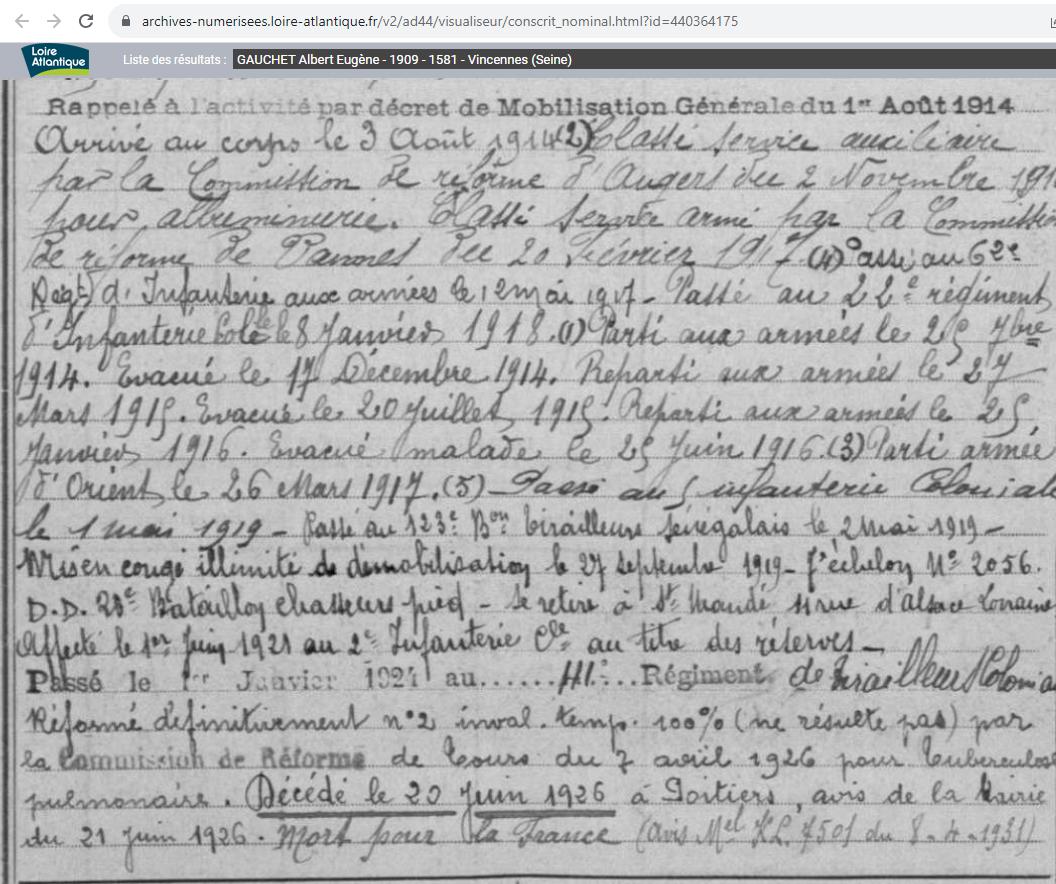 archives-numerisees.loire-atlantique.fr/v2/ad44/visualiseur/conscrit_nominal.html?id=440364175
Loire Atlantique
Liste des résultats : GAUCHET Albert Eugène - 1909 - 1581 - Vincennes (Seine)
Rappelé à l'activité par décret de Mobilisation Générale du 1er Août 1914
Arrivé au corps le 3 Août 1914 (2) Classé service auxiliaire
par la Commission de réforme d'Angers du 2 Novembre 191
pour albuminurie. Classé service armé par la Commissi
de réforme de Vannes du 20 Février 1917 (4) Passé au 62e
Régt d'Infanterie aux armées le 12 mai 1917 - Passé au 22e régiment
d'Infanterie Colle le 8 Janvier 1918. (1) Parti aux armées le 25 7bre
1914. Evacué le 17 Décembre 1914. Reparti aux armées le 27
Mars 1915. Evacué le 20 Juillet 1915. Reparti aux armées le 25
Janvier 1916. Evacué malade le 25 Juin 1916. (3) Parti armée
d'Orient le 26 Mars 1917. (5) - Passé au 5 infanterie Coloniale
le 1 mai 1919 - Passé au 123e Bon tirailleurs sénégalais le 2 mai 1919 -
Mis en congé illimité de démobilisation le 27 septembre 1919 - 7e échelon No 2056.
D.D. 28e Bataillon chasseurs pied - se retire à St Mandé 11 rue d'alsace Lorraine
Affecté le 1er Juin 1921 au 2e Infanterie Cle au titre des réserves -
Passé le 1er Janvier 1924 au ............ Régiment de Tirailleurs Colonia
Réformé définitivement no 2 inval. temp. 100% (ne résulte pas) par
la Commission de Réforme de Tours du 7 avril 1926 pour tuberculose
pulmonaire. Décédé le 20 Juin 1926 à Poitiers, avis de la Mairie
du 21 Juin 1926. Mort pour la France (avis Mel KL 7501 du 8-4-1931)